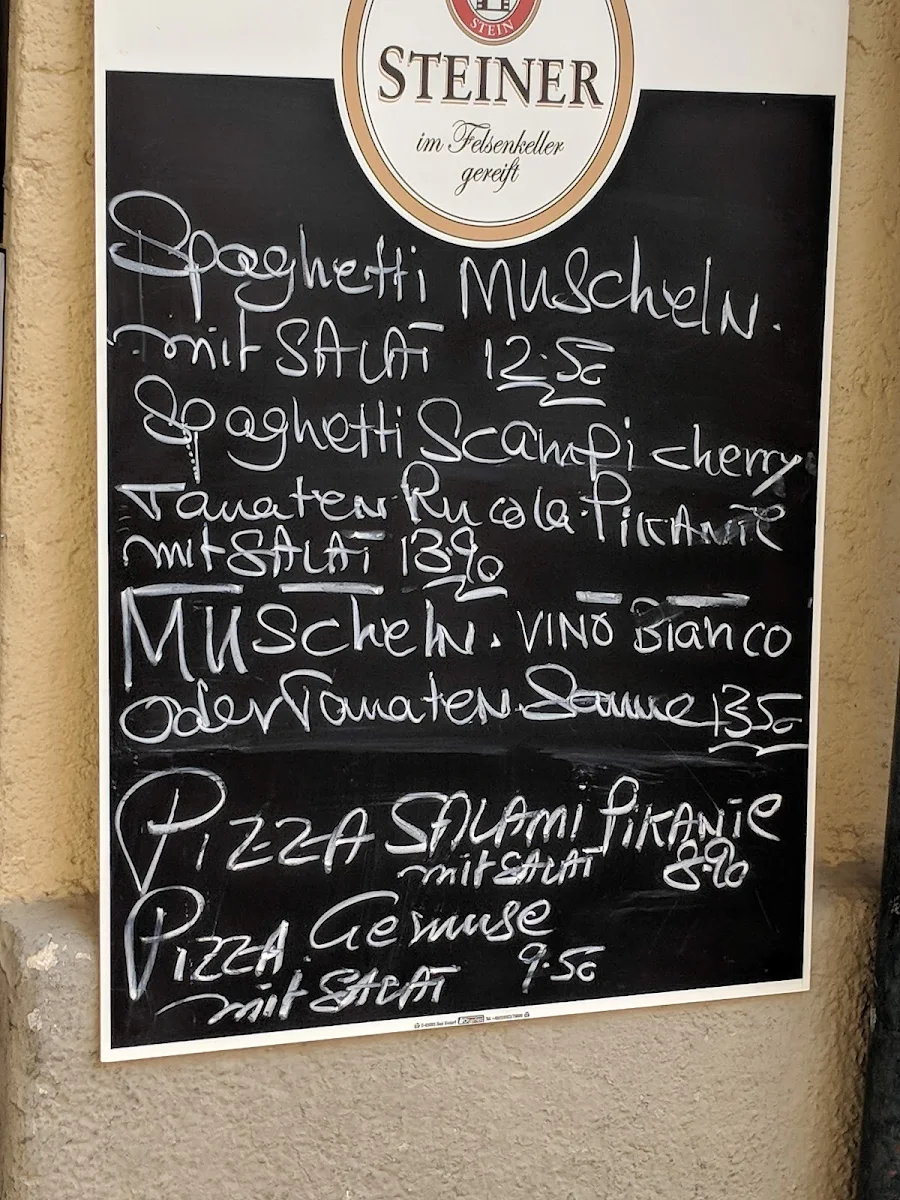 STEIN
STEINER
im Felsenkeller
gereift
Spaghetti MUScheln.
mit SALAT 12.50
Spaghetti Scampi cherry
Tomaten Rucola. PiKANTE
mit SALAT 13.90
MUScheln. VINO Bianco
oder Tomaten. Sauce 13.50
PIZZA SALAMi PiKANTE
mit SALAT 8.90
PIZZA. Gemuse
9.50
mit SALAT